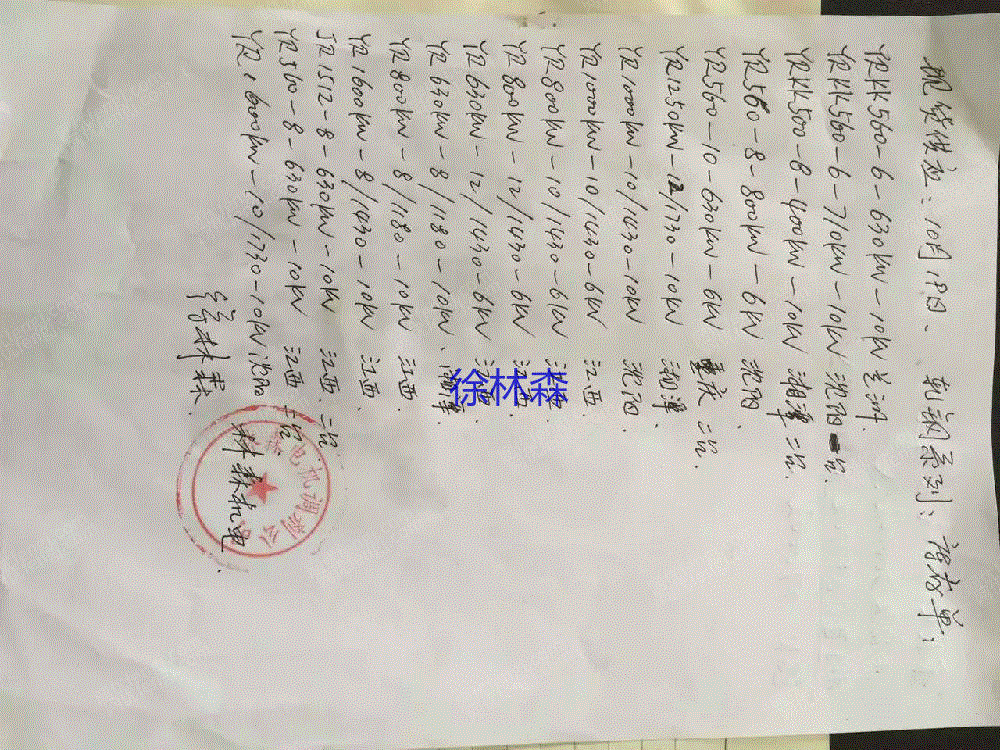 现货供应：10月18日．乾新系列：清单：
YRKK560-6-630KW-10KV 兰州．
YRKK560-6-710KW-10KV 沈阳 二台．
YRKK500-8-400KW-10KV 湘潭 二台．
YR560-8-800KW-6KV 沈阳．
YR560-10-630KW-6KV 重庆 二台．
YR1250KW-12/1730-10KV 湘潭
YR1000KW-10/1430-10KV 沈阳．
YR1000KW-10/1430-6KV 江西
YR800KW-10/1430-6KV 江西
YR800KW-12/1430-6KV 江西．
YR630KW-12/1430-6KV 江西．
YR630KW-8/1180-10KV．湘潭
YR800KW-8/1180-10KV 江西．
YR1600KW-8/1430-10KV 江西．
JR1512-8-630KW-10KV 江西．二台
YR560-8-630KW-10KV 江西 二台
YR1600KW-10/1730-10KV 沈阳
徐林森．
林森机电．
徐林森